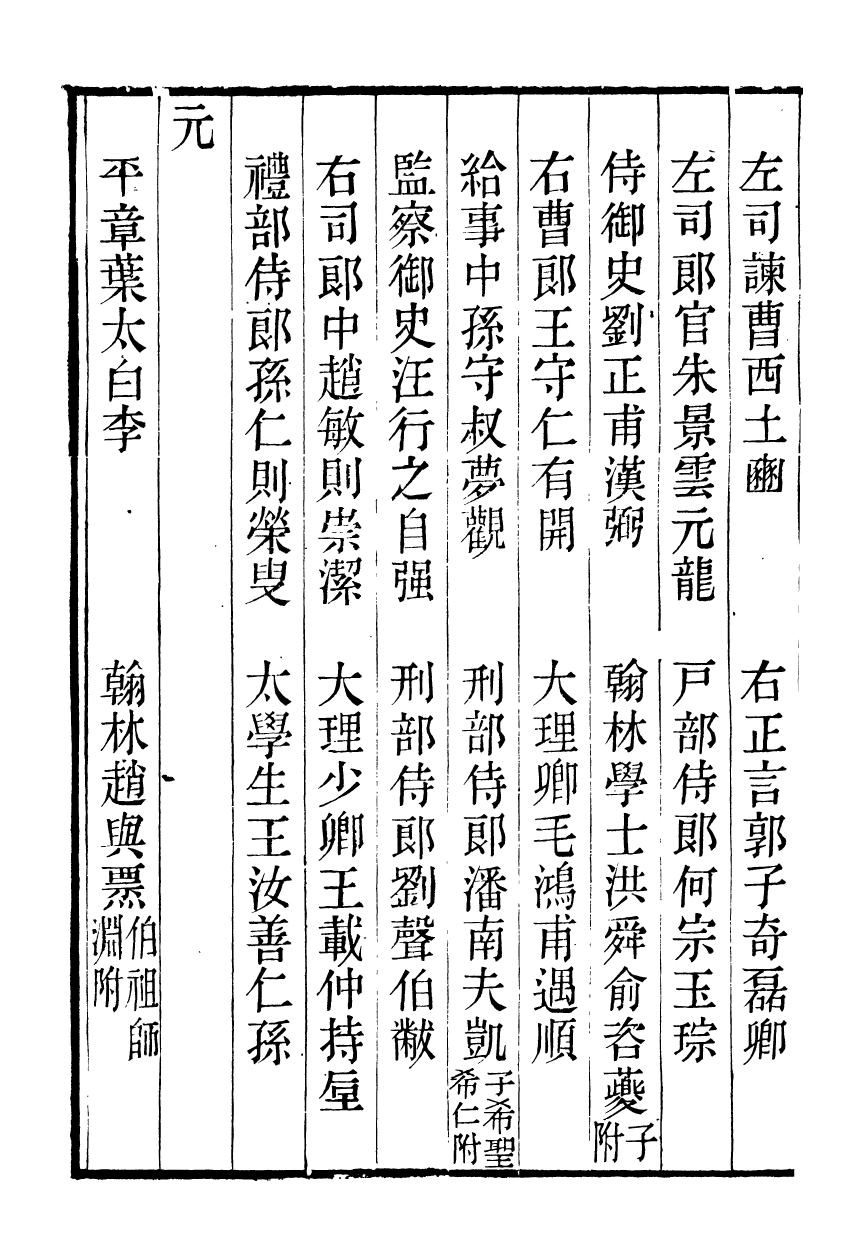 左司諫曹西土豳　右正言郭子奇磊卿
左司郎官朱景雲元龍　戸部侍郎何宗玉琮
侍御史劉正甫漢弼　翰林學士洪舜俞咨夔子附
右曹郎王守仁有開　大理卿毛鴻甫遇順
給事中孫守叔夢觀　刑部侍郎潘南夫凱子希聖希仁附
監察御史汪行之自强　刑部侍郎劉聲伯黻
右司郎中趙敏則崇潔　大理少卿王載仲持垕
禮部侍郎孫仁則榮叟　太學生王汝善仁孫
元
平章葉太白李　翰林趙與𤐫伯祖師淵附